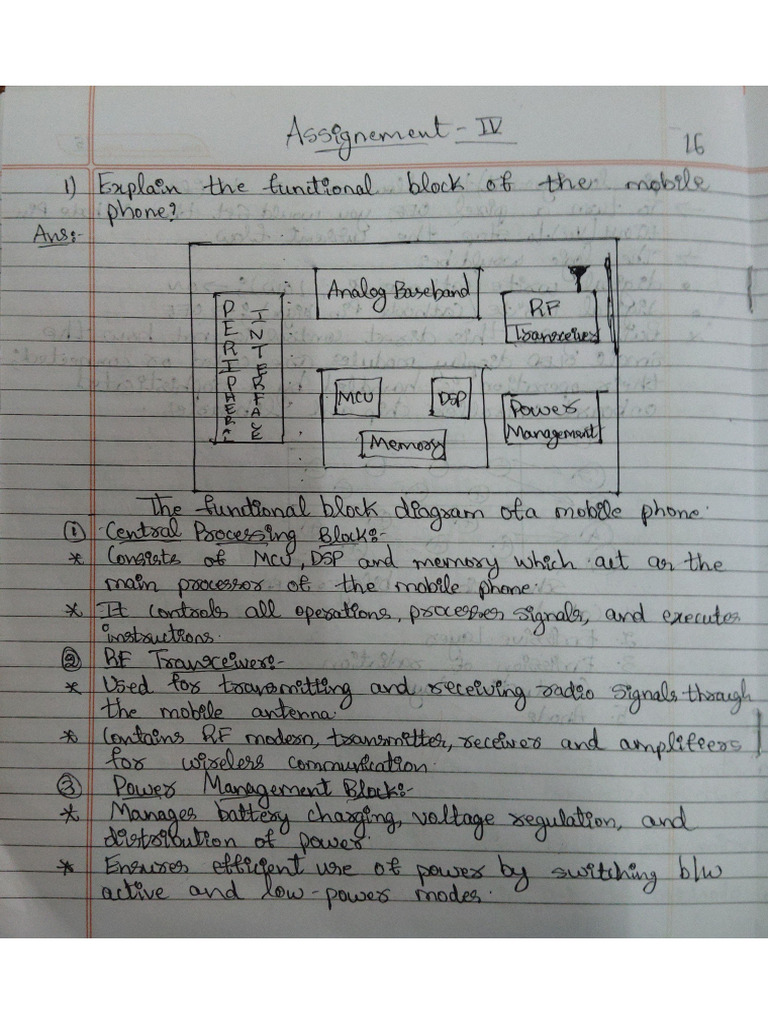 Assignement - IV
16
1) Explain the functional block of the mobile
phone?
Ans:-
PERIPHERAL
INTERFACE
Analog Baseband
RF
Transceiver
MCU
DSP
Memory
Power
Management
The functional block diagram of a mobile phone.
① Central Processing Block:-
* Consists of MCU, DSP and memory which act as the
main processor of the mobile phone.
* It controls all operations, processes signals, and executes
instructions.
② RF Transceiver:-
* Used for transmitting and receiving radio signals through
the mobile antenna.
* Contains RF modern, transmitter, receiver and amplifiers
for wireless communication.
③ Power Management Block:-
* Manages battery charging, voltage regulation, and
distribution of power.
* Ensures efficient use of power by switching b/w
active and low-power modes.